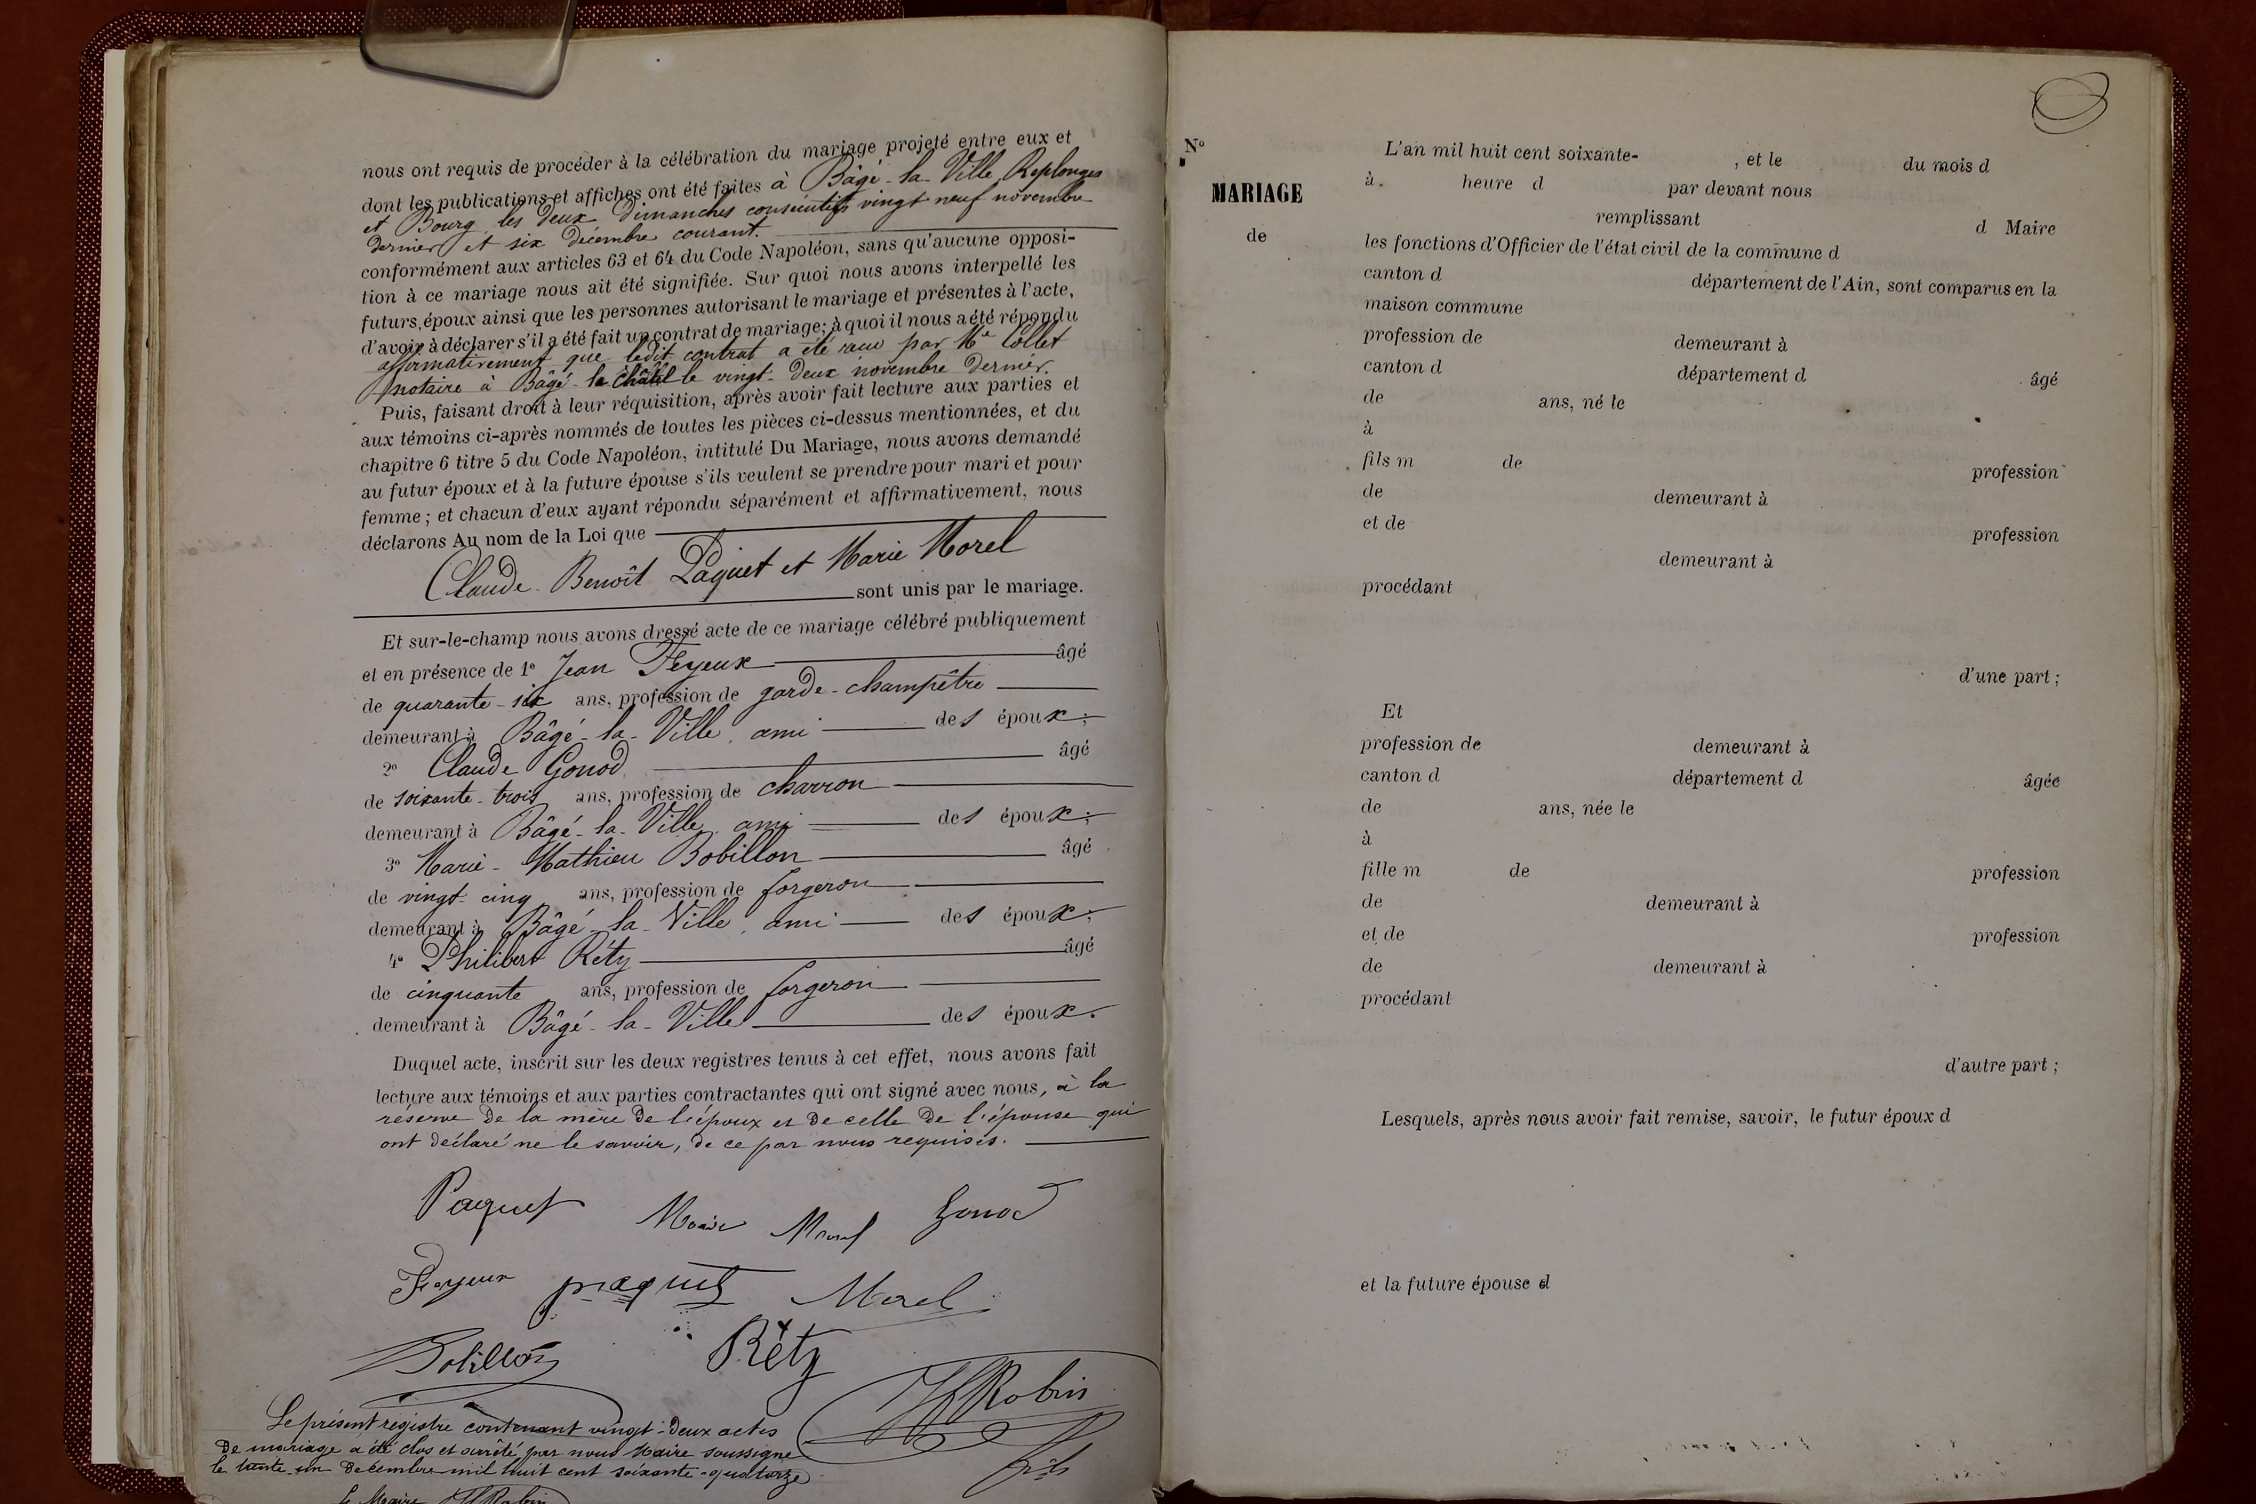 nous ont requis de procéder à la célébration du mariage projeté entre eux et
dont les publications et affiches ont été faites à Bâgé-la-Ville, Replonges
et Bourg, les deux dimanches consécutifs vingt neuf novembre
dernier et six décembre courant.
conformément aux articles 63 et 64 du Code Napoléon, sans qu'aucune opposi-
tion à ce mariage nous ait été signifiée. Sur quoi nous avons interpellé les
futurs époux ainsi que les personnes autorisant le mariage et présentes à l'acte,
d'avoir à déclarer s'il a été fait un contrat de mariage; à quoi il nous a été répondu
affirmativement que ledit contrat a été reçu par Me Collet
notaire à Bâgé-le-Châtel le vingt-deux novembre dernier.
Puis, faisant droit à leur réquisition, après avoir fait lecture aux parties et
aux témoins ci-après nommés de toutes les pièces ci-dessus mentionnées, et du
chapitre 6 titre 5 du Code Napoléon, intitulé Du Mariage, nous avons demandé
au futur époux et à la future épouse s'ils veulent se prendre pour mari et pour
femme; et chacun d'eux ayant répondu séparément et affirmativement, nous
déclarons Au nom de la Loi que
Claude-Benoît Paquet et Marie Morel
sont unis par le mariage.
Et sur-le-champ nous avons dressé acte de ce mariage célébré publiquement
et en présence de 1° Jean Feyeux âgé
de quarante-six ans, profession de garde-champêtre
demeurant à Bâgé-la-Ville, ami des époux;
2° Claude Gonod âgé
de soixante-trois ans, profession de charron
demeurant à Bâgé-la-Ville, ami des époux;
3° Marie-Mathieu Bobillon âgé
de vingt-cinq ans, profession de forgeron
demeurant à Bâgé-la-Ville, ami des époux;
4° Philibert Réty âgé
de cinquante ans, profession de forgeron
demeurant à Bâgé-la-Ville des époux.
Duquel acte, inscrit sur les deux registres tenus à cet effet, nous avons fait
lecture aux témoins et aux parties contractantes qui ont signé avec nous, à la
réserve de la mère de l'époux et de celle de l'épouse qui
ont déclaré ne le savoir, de ce par nous requises.
Paquet Marie Morel Gonod
Feyeux paquet Morel
Bobillon Réty
Robin
Le présent registre contenant vingt-deux actes
de mariage a été clos et arrêté par nous Maire soussigné
le trente-un décembre mil huit cent soixante-quatorze
Le Maire Robin
N°
MARIAGE
de
L'an mil huit cent soixante- , et le du mois d
à heure d par devant nous
remplissant d Maire
les fonctions d'Officier de l'état civil de la commune d
canton d département de l'Ain, sont comparus en la
maison commune
profession de demeurant à
canton d département d âgé
de ans, né le
à
fils m de profession
de demeurant à
et de profession
demeurant à
procédant
d'une part;
Et
profession de demeurant à
canton d département d âgée
de ans, née le
à
fille m de profession
de demeurant à
et de profession
de demeurant à
procédant
d'autre part;
Lesquels, après nous avoir fait remise, savoir, le futur époux d
et la future épouse d